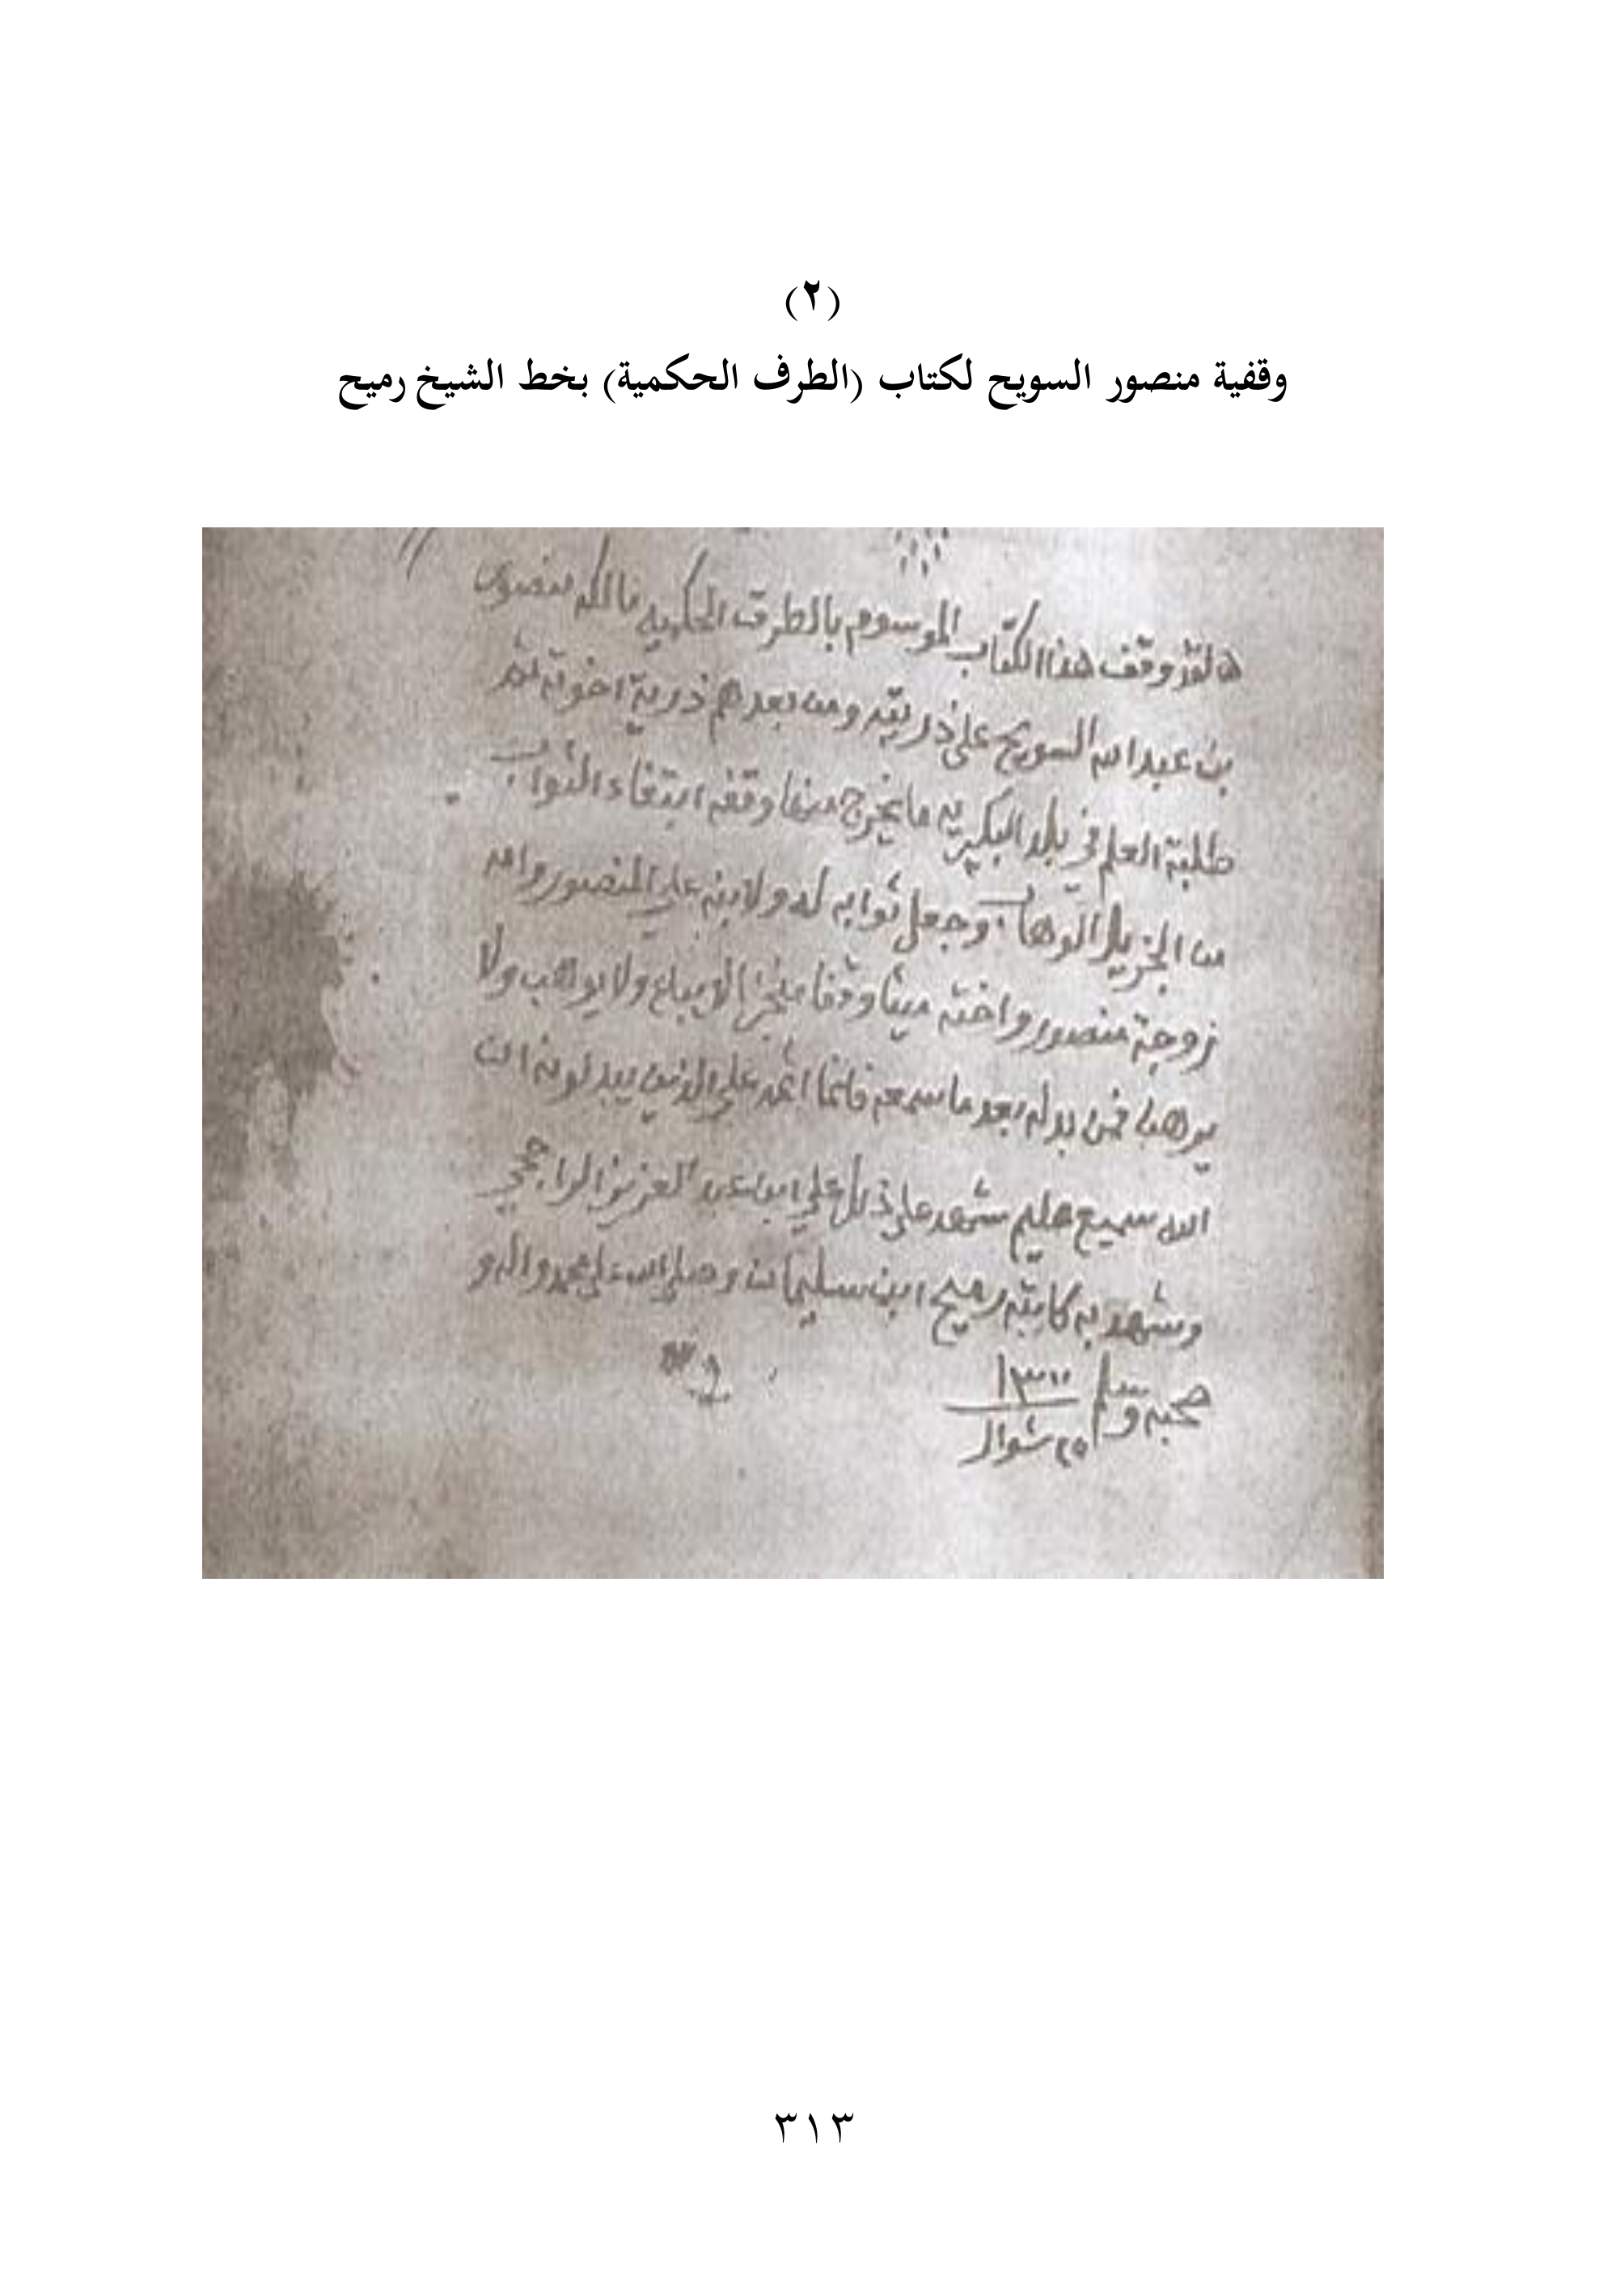 (٢)
وقفية منصور السويح لكتاب (الطرف الحكمية) بخط الشيخ رميح
لقد وقف هذا الكتاب الموسوم بالطرق الحكميه مالكه منصور
بن عبدالله السويح على ذريته ومن بعدهم ذرية اخوته ثم
طلبة العلم في بلد البكيريه ما يخرج منها وقفه ابتغاء الثواب
من الجزيل الوهاب وجعل ثوابه له ولابنه علي المنصور وامه
زوجة منصور واخته ميثا وقفا منجزا لا يباع ولا يوهب ولا
يرهن فمن بدله بعد ما سمعه فانما اثمه على الذين يبدلونه ان
الله سميع عليم شهد على ذلك علي ابن عبد العزيز الراجحي
وشهد به كاتبه رميح ابن سليمان وصلى الله على محمد واله و
صحبه وسلم ١٣٠٠
٢٥ شوال
٣١٣